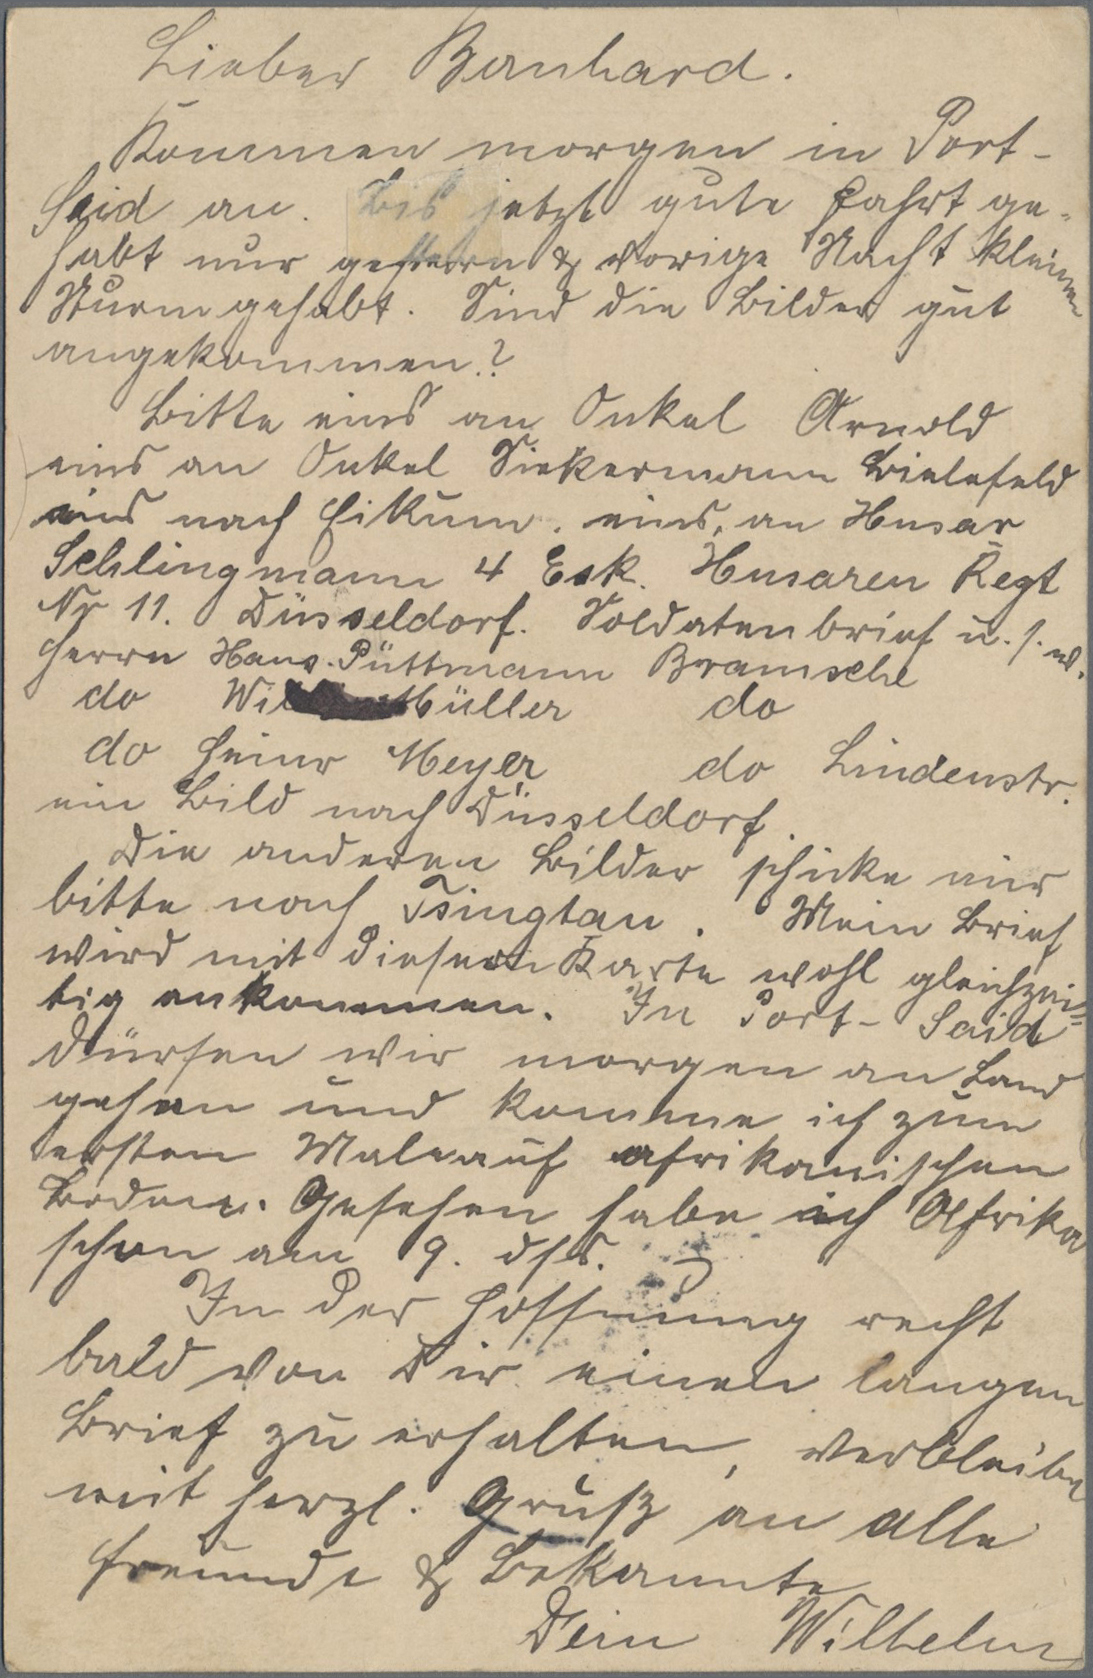 Lieber Bernhard.
Kommen morgen in Port-
Said an. Bis jetzt gute Fahrt ge-
habt nur gestern & vorige Nacht kleinen
Sturm gehabt. Sind die Bilder gut
angekommen?
Bitte eins an Onkel Arnold
eins an Onkel Siekermann Bielefeld
eins nach Hikum. eins, an Husar
Schlingmann 4 Esk. Husaren Regt
Nr 11. Düsseldorf. Soldatenbrief u. s. w.
Herrn Hans Püttmann Bramsche
do Müller do
do Heinr Meyer do Lindenstr.
ein Bild nach Düsseldorf.
Die anderen Bilder schicke mir
bitte nach Tsingtau. Mein Brief
wird mit dieser Karte wohl gleichzei-
tig ankommen. In Port-Said
dürfen wir morgen an Land
gehen und komme ich zum
ersten Male auf afrikanischen
Boden. Gesehen habe ich Afrika
schon am 9. dss.
In der Hoffnung recht
bald von Dir einen langen
Brief zu erhalten, verbleibe
mit herzl. Gruß an alle
Freunde & Bekannte
Dein Wilhelm